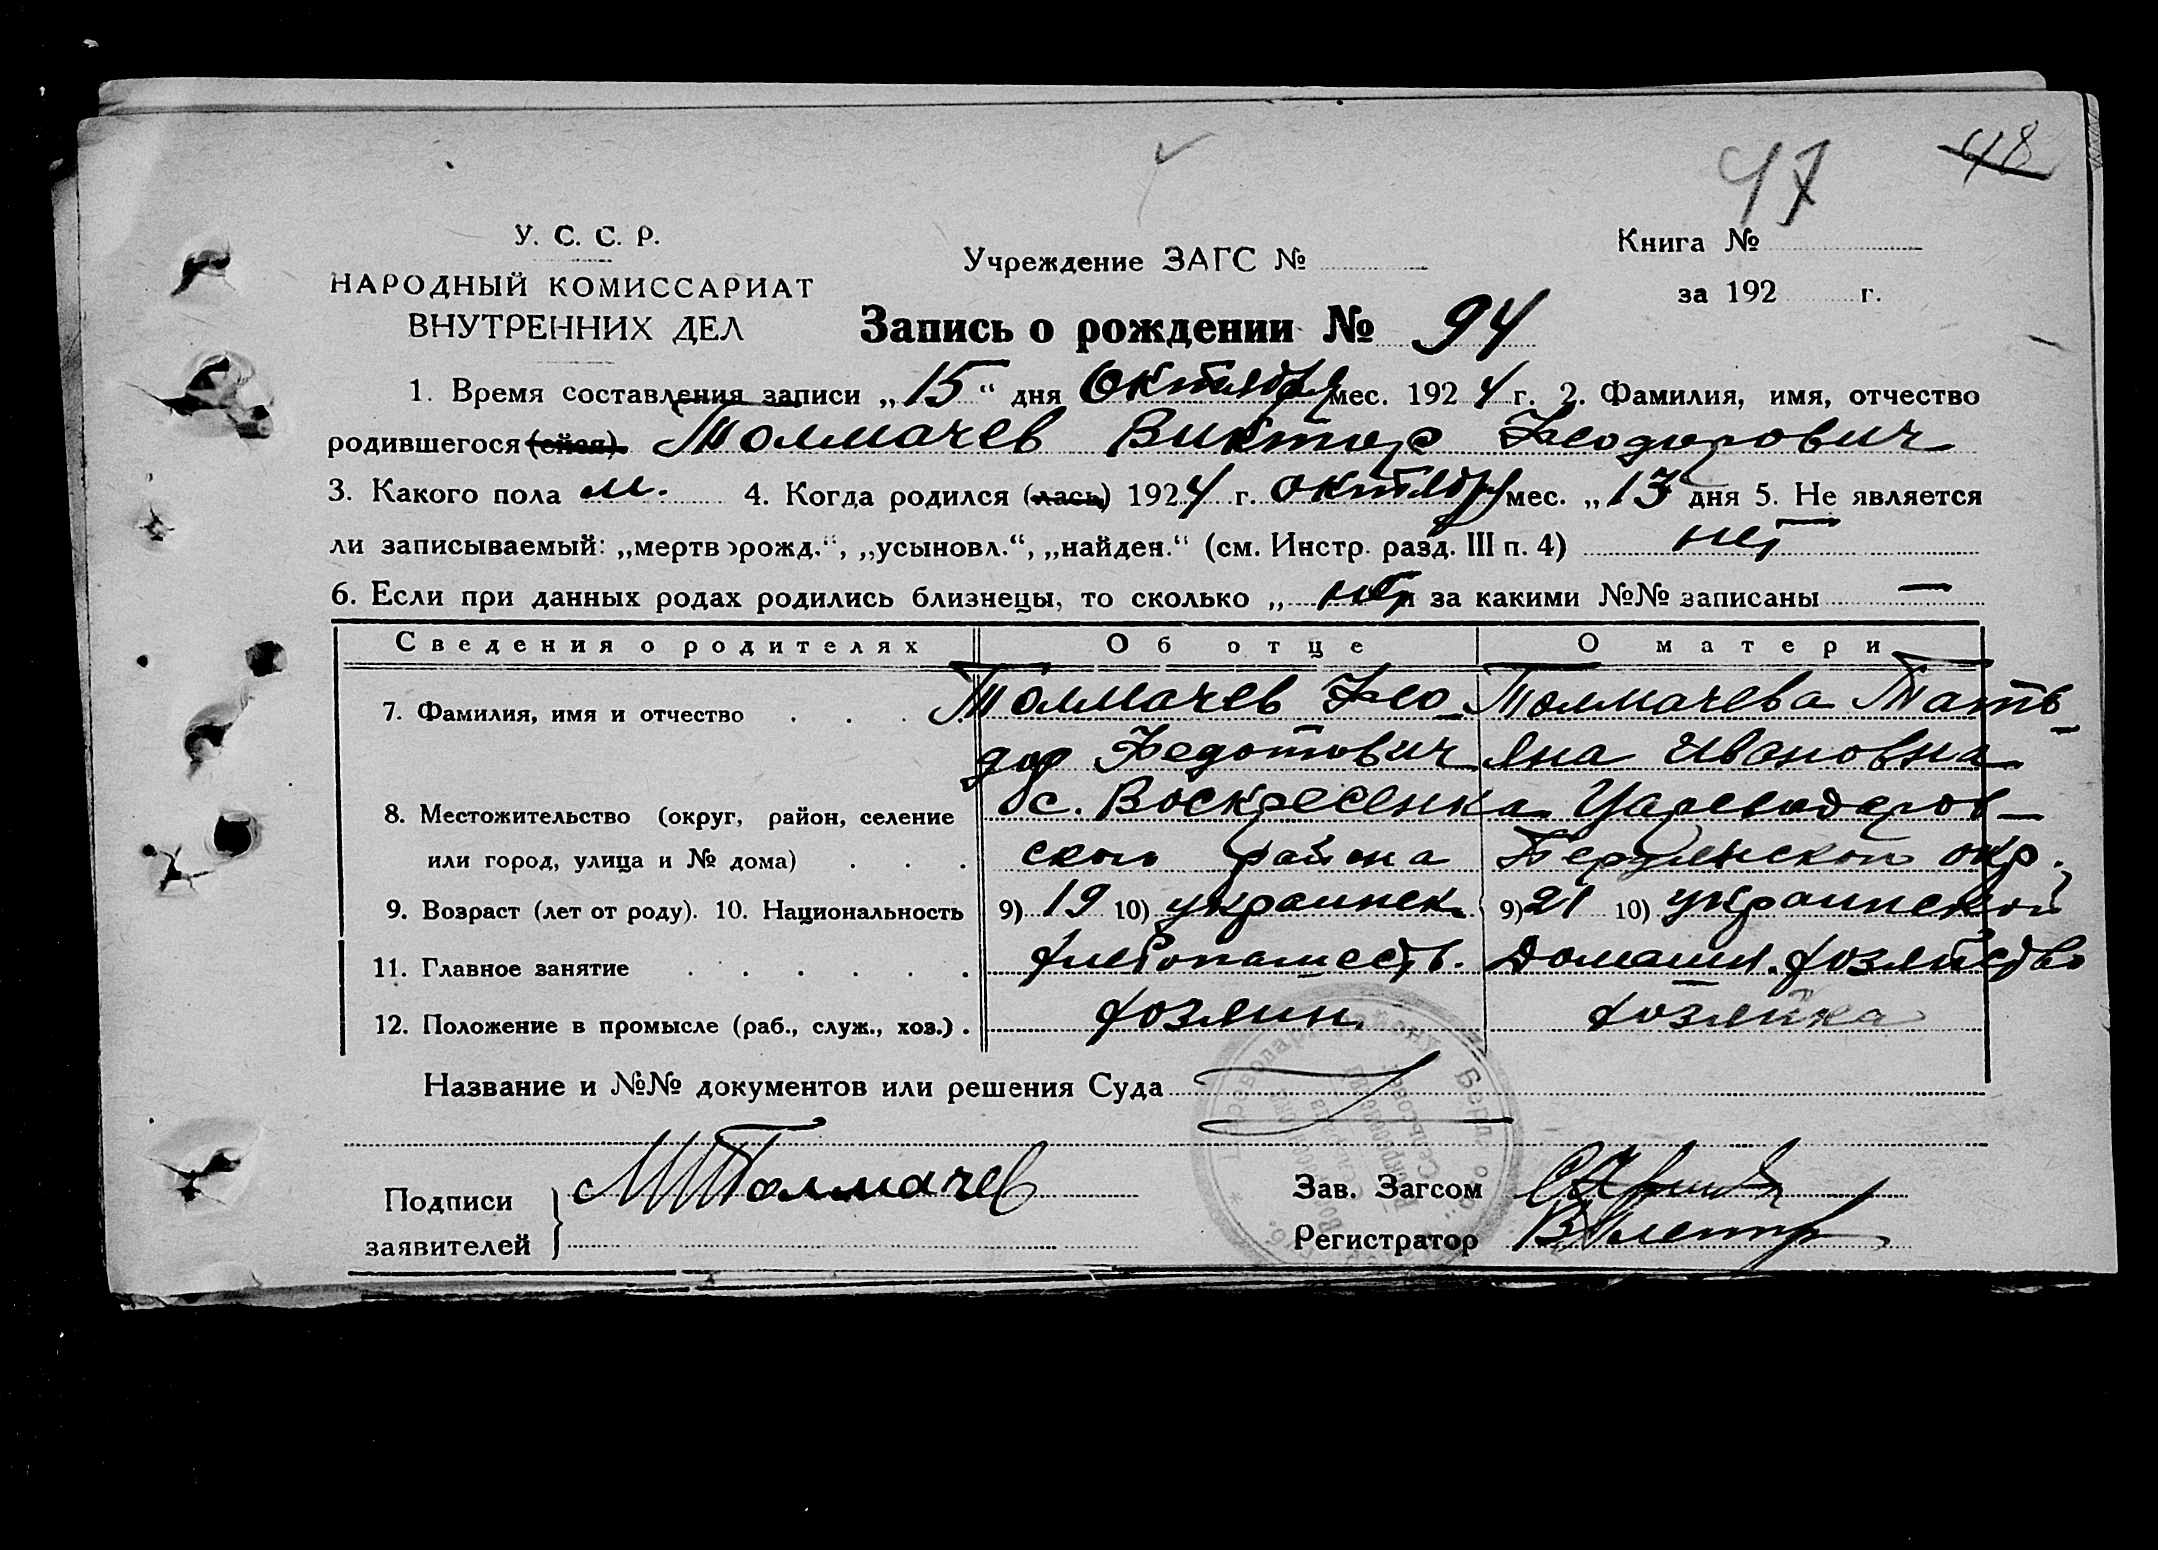 47 48
У. С. С. Р.
НАРОДНЫЙ КОМИССАРИАТ
ВНУТРЕННИХ ДЕЛ
Учреждение ЗАГС №
Книга №
за 192 г.
Запись о рождении № 94
1. Время составления записи „15“ дня Октября мес. 1924 г. 2. Фамилия, имя, отчество
родившегося (ейся) Толмачев Виктор Феодорович
3. Какого пола м. 4. Когда родился (лась) 1924 г. октября мес. „13 дня 5. Не является
ли записываемый: „мертворожд.“, „усыновл.“, „найден.“ (см. Инстр. разд. III п. 4) нет
6. Если при данных родах родились близнецы, то сколько „ нет и за какими №№ записаны —
Сведения о родителях Об отце О матери
7. Фамилия, имя и отчество . . . Толмачев Фео- Толмачева Тать-
дор Федотович яна Ивановна
8. Местожительство (округ, район, селение с. Воскресенка Цареводаров-
или город, улица и № дома) . . . ского района Бердянской окр.
9. Возраст (лет от роду). 10. Национальность 9) 19 10) украинск. 9) 21 10) украинской
11. Главное занятие . . . . . . хлебопашеств. Домашн. хозяйство
12. Положение в промысле (раб., служ., хоз.) . хозяин хозяйка
Название и №№ документов или решения Суда
Подписи
заявителей
Толмачев
Зав. Загсом
Регистратор